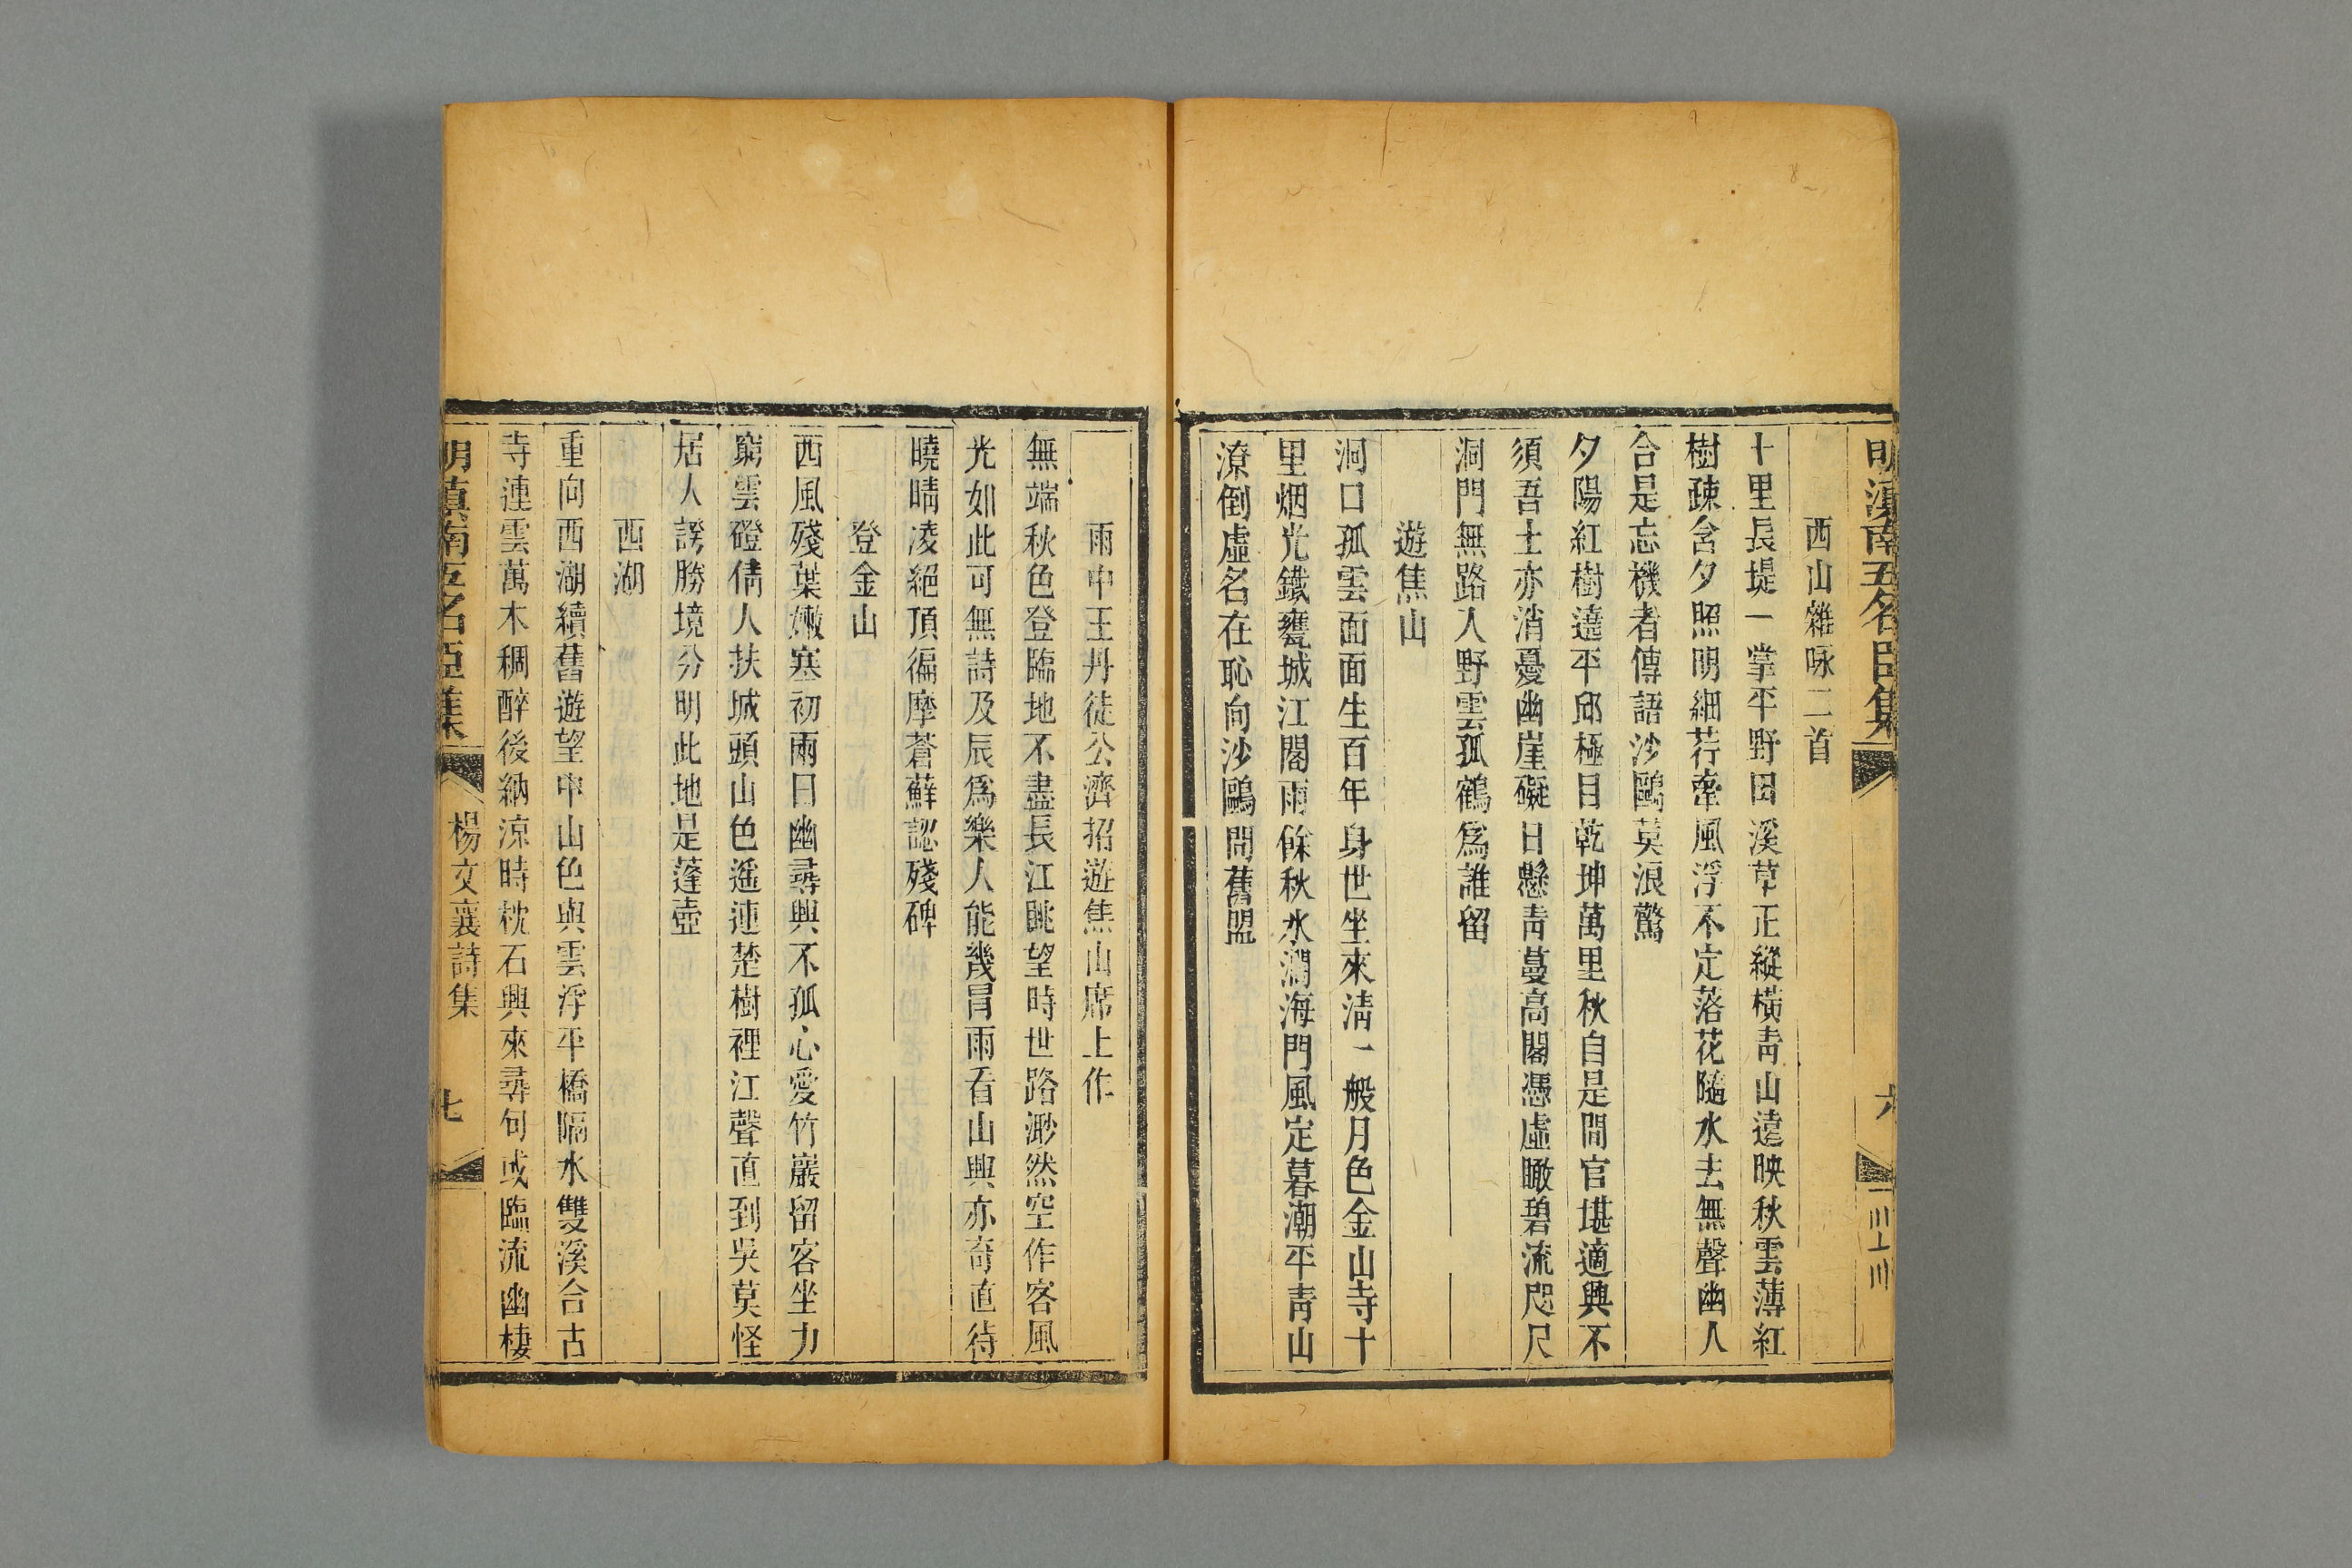 明滇南五名臣集
六
西山雜咏二首
十里長堤一掌平野田溪草正縱橫靑山遠映秋雲薄紅
樹疎含夕照明細荇牽風浮不定落花隨水去無聲幽人
合是忘機者傳語沙鷗莫浪驚
夕陽紅樹遶平邱極目乾坤萬里秋自是閒官堪適興不
須吾土亦消憂幽崖礙日懸靑蔓高閣憑虛瞰碧流咫尺
洞門無路入野雲孤鶴爲誰留
遊焦山
洞口孤雲面面生百年身世坐來淸一般月色金山寺十
里烟光鐵甕城江閣雨餘秋水濶海門風定暮潮平靑山
潦倒虛名在恥向沙鷗問舊盟
雨中王丹徒公濟招遊焦山席上作
無端秋色登臨地不盡長江眺望時世路渺然空作客風
光如此可無詩及辰爲樂人能幾冒雨看山興亦奇直待
曉晴凌絕頂徧摩蒼蘚認殘碑
登金山
西風殘葉嫩寒初兩日幽尋興不孤心愛竹巖留客坐力
窮雲磴倩人扶城頭山色遙連楚樹裡江聲直到吳莫怪
居人誇勝境分明此地是蓬壺
西湖
重向西湖續舊遊望中山色與雲浮平橋隔水雙溪合古
寺連雲萬木稠醉後納涼時枕石興來尋句或臨流幽棲
明滇南五名臣集
楊文襄詩集
七